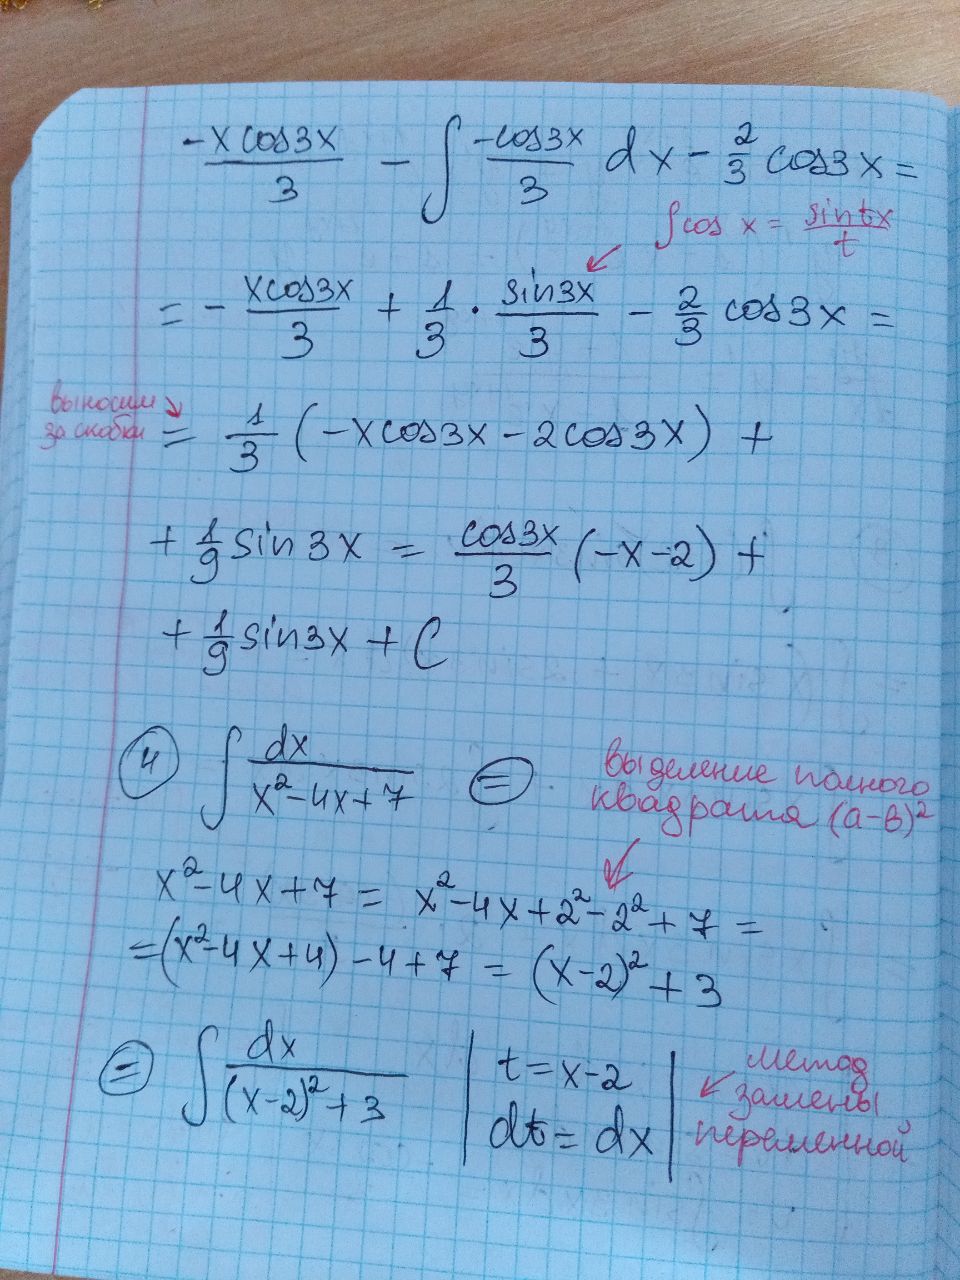 -xcos3x/3 - ∫ -cos3x/3 dx - 2/3 cos3x =
∫cos x = sin tx/t
= - xcos3x/3 + 1/3 · sin3x/3 - 2/3 cos3x =
выносим
за скобки
= 1/3 (-xcos3x - 2cos3x) +
+ 1/9 sin3x = cos3x/3 (-x-2) +
+ 1/9 sin3x + C
4 ∫ dx/(x²-4x+7) =
выделение полного
квадрата (a-b)²
x²-4x+7 = x²-4x+2²-2²+7 =
=(x²-4x+4)-4+7 = (x-2)²+3
= ∫ dx/((x-2)²+3) | t=x-2
dt=dx |
метод
замены
переменной